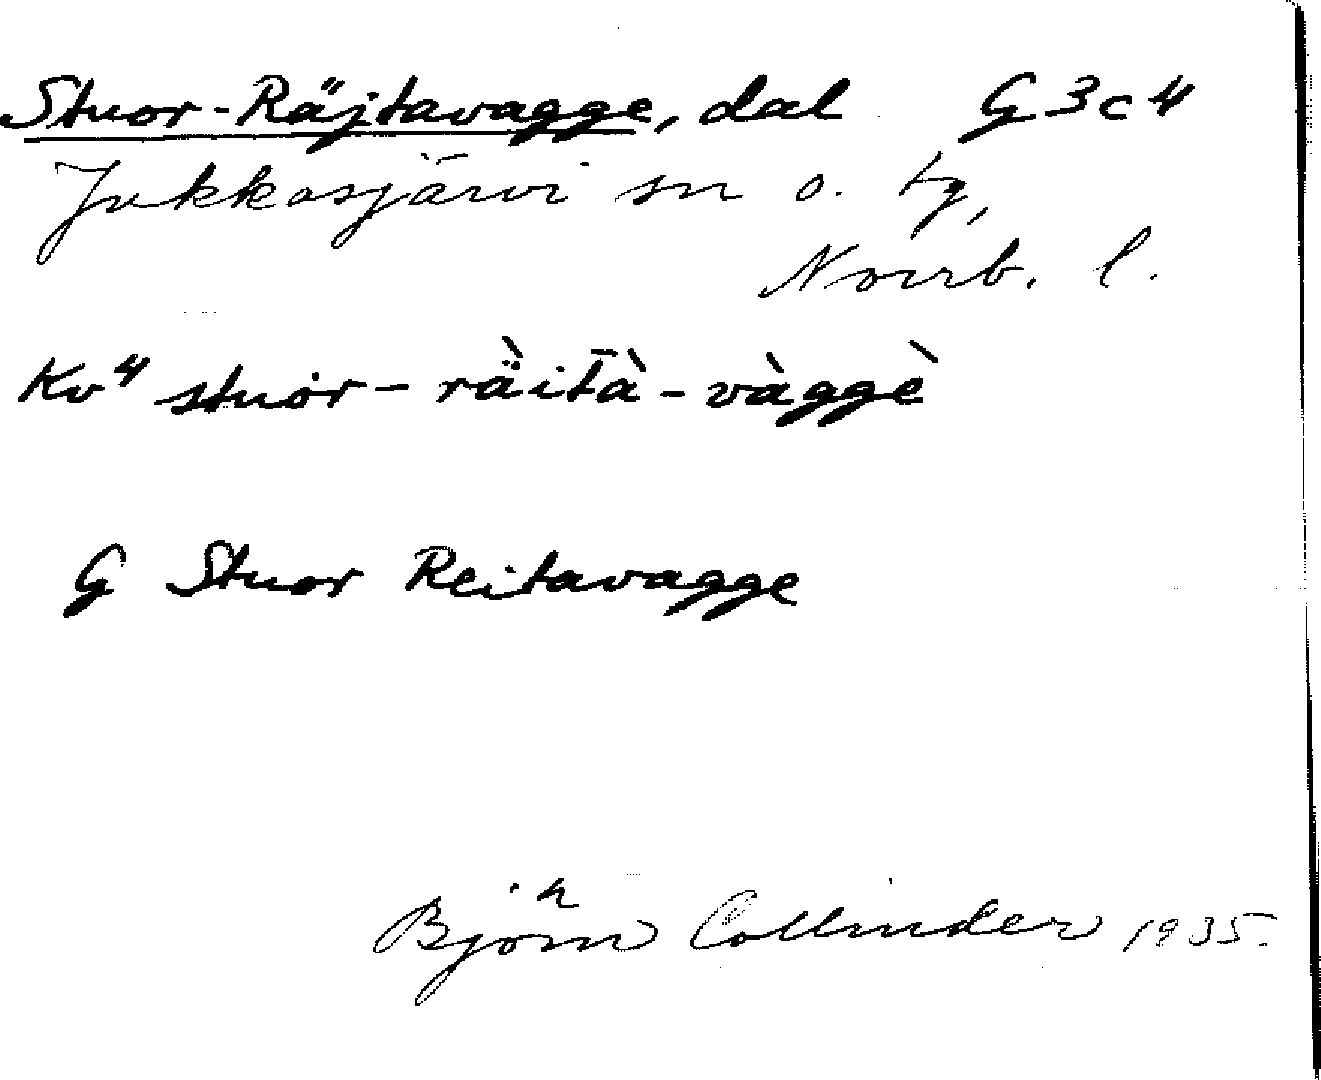 Stuor-Räjtavagge, dal G 3 c 4
Jukkasjärvi sn o. tg,
Norrb. l.
Kv⁴ stuȯr - rä̀itā̀ - vàggè
G Stuor Reitavagge
Björn Collinder 1935.